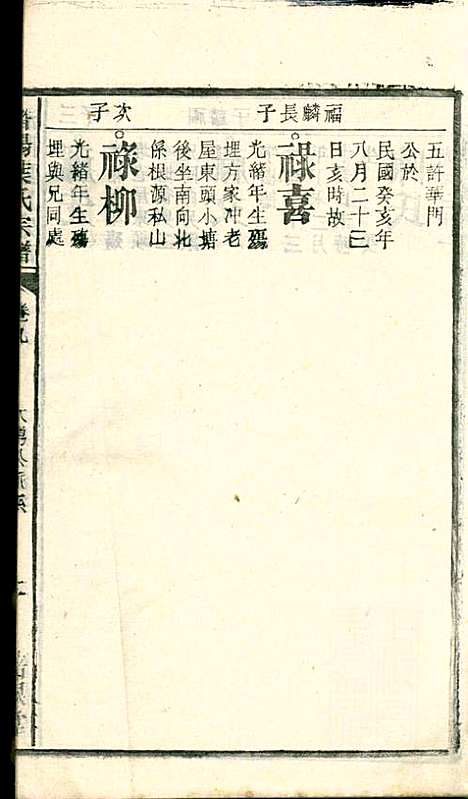 五許華門
公於
民國癸亥年
八月二十三
日亥時故
福麟長子
祿喜
光緒年生殤
埋方家冲老
屋東頭小塘
後坐南向北
係根源私山
次子
祿柳
光緒年生殤
埋與兄同處
葉氏宗譜
卷九